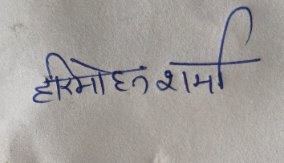 हरिमोहन शर्मा